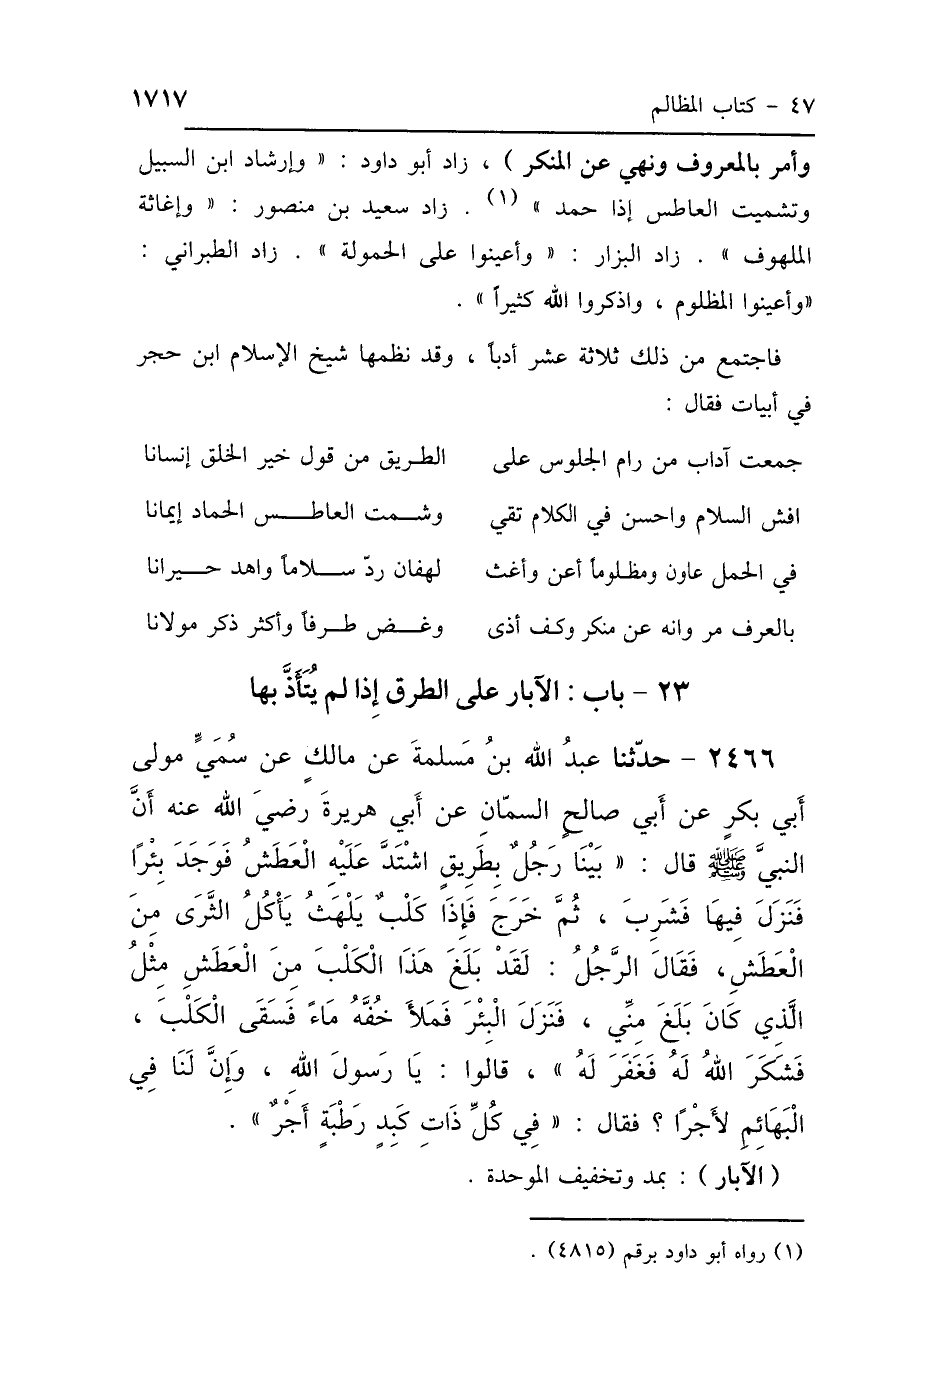 ٤٧ - كتاب المظالم ١٧١٧
وأمر بالمعروف ونهي عن المنكر ) ، زاد أبو داود : « وإرشاد ابن السبيل
وتشميت العاطس إذا حمد » (١) . زاد سعيد بن منصور : « وإغاثة
الملهوف » . زاد البزار : « وأعينوا على الحمولة » . زاد الطبراني :
«وأعينوا المظلوم ، واذكروا الله كثيراً » .
فاجتمع من ذلك ثلاثة عشر أدباً ، وقد نظمها شيخ الإسلام ابن حجر
في أبيات فقال :
جمعت آداب من رام الجلوس على الطريق من قول خير الخلق إنسانا
افش السلام واحسن في الكلام تقي وشمت العاطس الحماد إيمانا
في الحمل عاون ومظلوماً أعن وأغث لهفان ردّ سلاماً واهد حيرانا
بالعرف مر وانه عن منكر وكف أذى وغض طرفاً وأكثر ذكر مولانا
٢٣ - باب : الآبار على الطرق إِذا لم يُتَأَذَّ بها
٢٤٦٦ - حدّثنا عبدُ الله بنُ مَسلمةَ عن مالكٍ عن سُمَيٍّ مولى
أَبي بكرٍ عن أَبي صالحٍ السمّانِ عن أَبي هريرةَ رضيَ الله عنه أَنَّ
النبيَّ ﷺ قال : « بَيْنَا رَجُلٌ بِطَرِيقٍ اشْتَدَّ عَلَيْهِ الْعَطَشُ فَوَجَدَ بِئْرًا
فَنَزَلَ فِيهَا فَشَرِبَ ، ثُمَّ خَرَجَ فَإِذَا كَلْبٌ يَلْهَثُ يَأْكُلُ الثَّرَى مِنَ
الْعَطَشِ، فَقَالَ الرَّجُلُ : لَقَدْ بَلَغَ هَذَا الْكَلْبَ مِنَ الْعَطَشِ مِثْلُ
الَّذِي كَانَ بَلَغَ مِنِّي ، فَنَزَلَ الْبِئْرَ فَمَلأَ خُفَّهُ مَاءً فَسَقَى الْكَلْبَ ،
فَشَكَرَ اللهُ لَهُ فَغَفَرَ لَهُ » ، قالوا : يَا رَسولَ الله ، وَإِنَّ لَنَا فِي
الْبَهَائِمِ لأَجْرًا ؟ فقال : « فِي كُلِّ ذَاتِ كَبِدٍ رَطْبَةٍ أَجْرٌ » .
( الآبار ) : بمد وتخفيف الموحدة .
(١) رواه أبو داود برقم (٤٨١٥) .